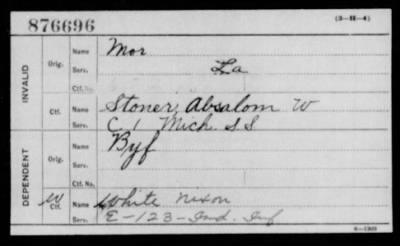 876696
(3-H-4)
INVALID
Orig.
Name Mor
Serv. La
Ctf. No.
Ctf.
Name Stoner, Absalom W
Serv. C 1 Mich. S S
DEPENDENT
Orig.
Name Byf
Serv.
Ctf. No.
W Ctf.
Name White Nixon
Serv. E-123-Ind. Inf